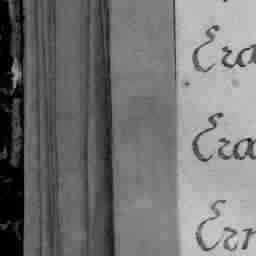 Era
Era
Err